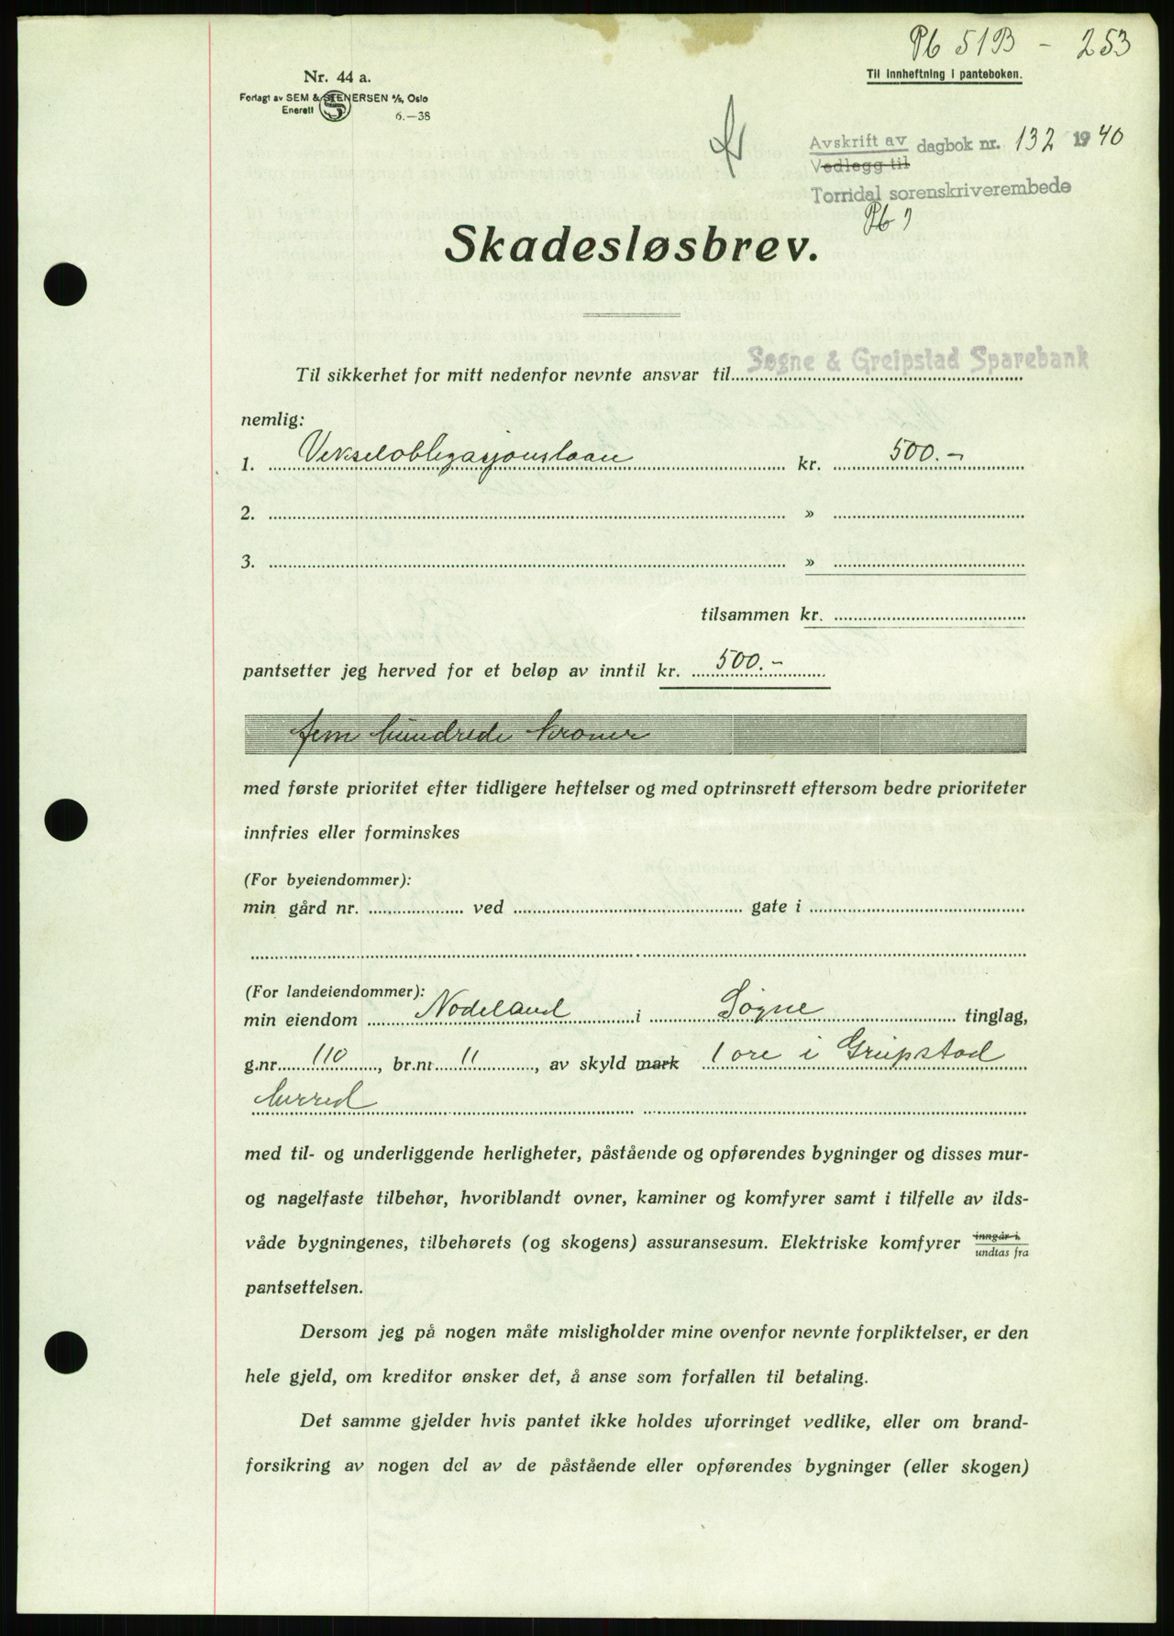 Pb 51B - 253
Til innheftning i panteboken.
Nr. 44 a.
Forlagt av SEM & STENERSEN A/S, Oslo
Enerett
6.—38
Avskrift av dagbok nr. 132 1940
Vedlegg til
Torridal sorenskriverembede
Pb
Skadesløsbrev.
Til sikkerhet for mitt nedenfor nevnte ansvar til Søgne & Greipstad Sparebank
nemlig:
1. Vekselobligasjonslaan kr. 500.-
2. »
3. »
tilsammen kr.
pantsetter jeg herved for et beløp av inntil kr. 500.-
fem hundrede kroner
med første prioritet efter tidligere heftelser og med optrinsrett eftersom bedre prioriteter
innfries eller forminskes
(For byeiendommer):
min gård nr. ved gate i
(For landeiendommer):
min eiendom Nodeland i Søgne tinglag,
g.nr. 110, br.nr. 11, av skyld mark 1 øre i Greipstad
herred
med til- og underliggende herligheter, påstående og opførendes bygninger og disses mur-
og nagelfaste tilbehør, hvoriblandt ovner, kaminer og komfyrer samt i tilfelle av ilds-
våde bygningenes, tilbehørets (og skogens) assuransesum. Elektriske komfyrer inngår i undtas fra
pantsettelsen.
Dersom jeg på nogen måte misligholder mine ovenfor nevnte forpliktelser, er den
hele gjeld, om kreditor ønsker det, å anse som forfallen til betaling.
Det samme gjelder hvis pantet ikke holdes uforringet vedlike, eller om brand-
forsikring av nogen del av de påstående eller opførendes bygninger (eller skogen)